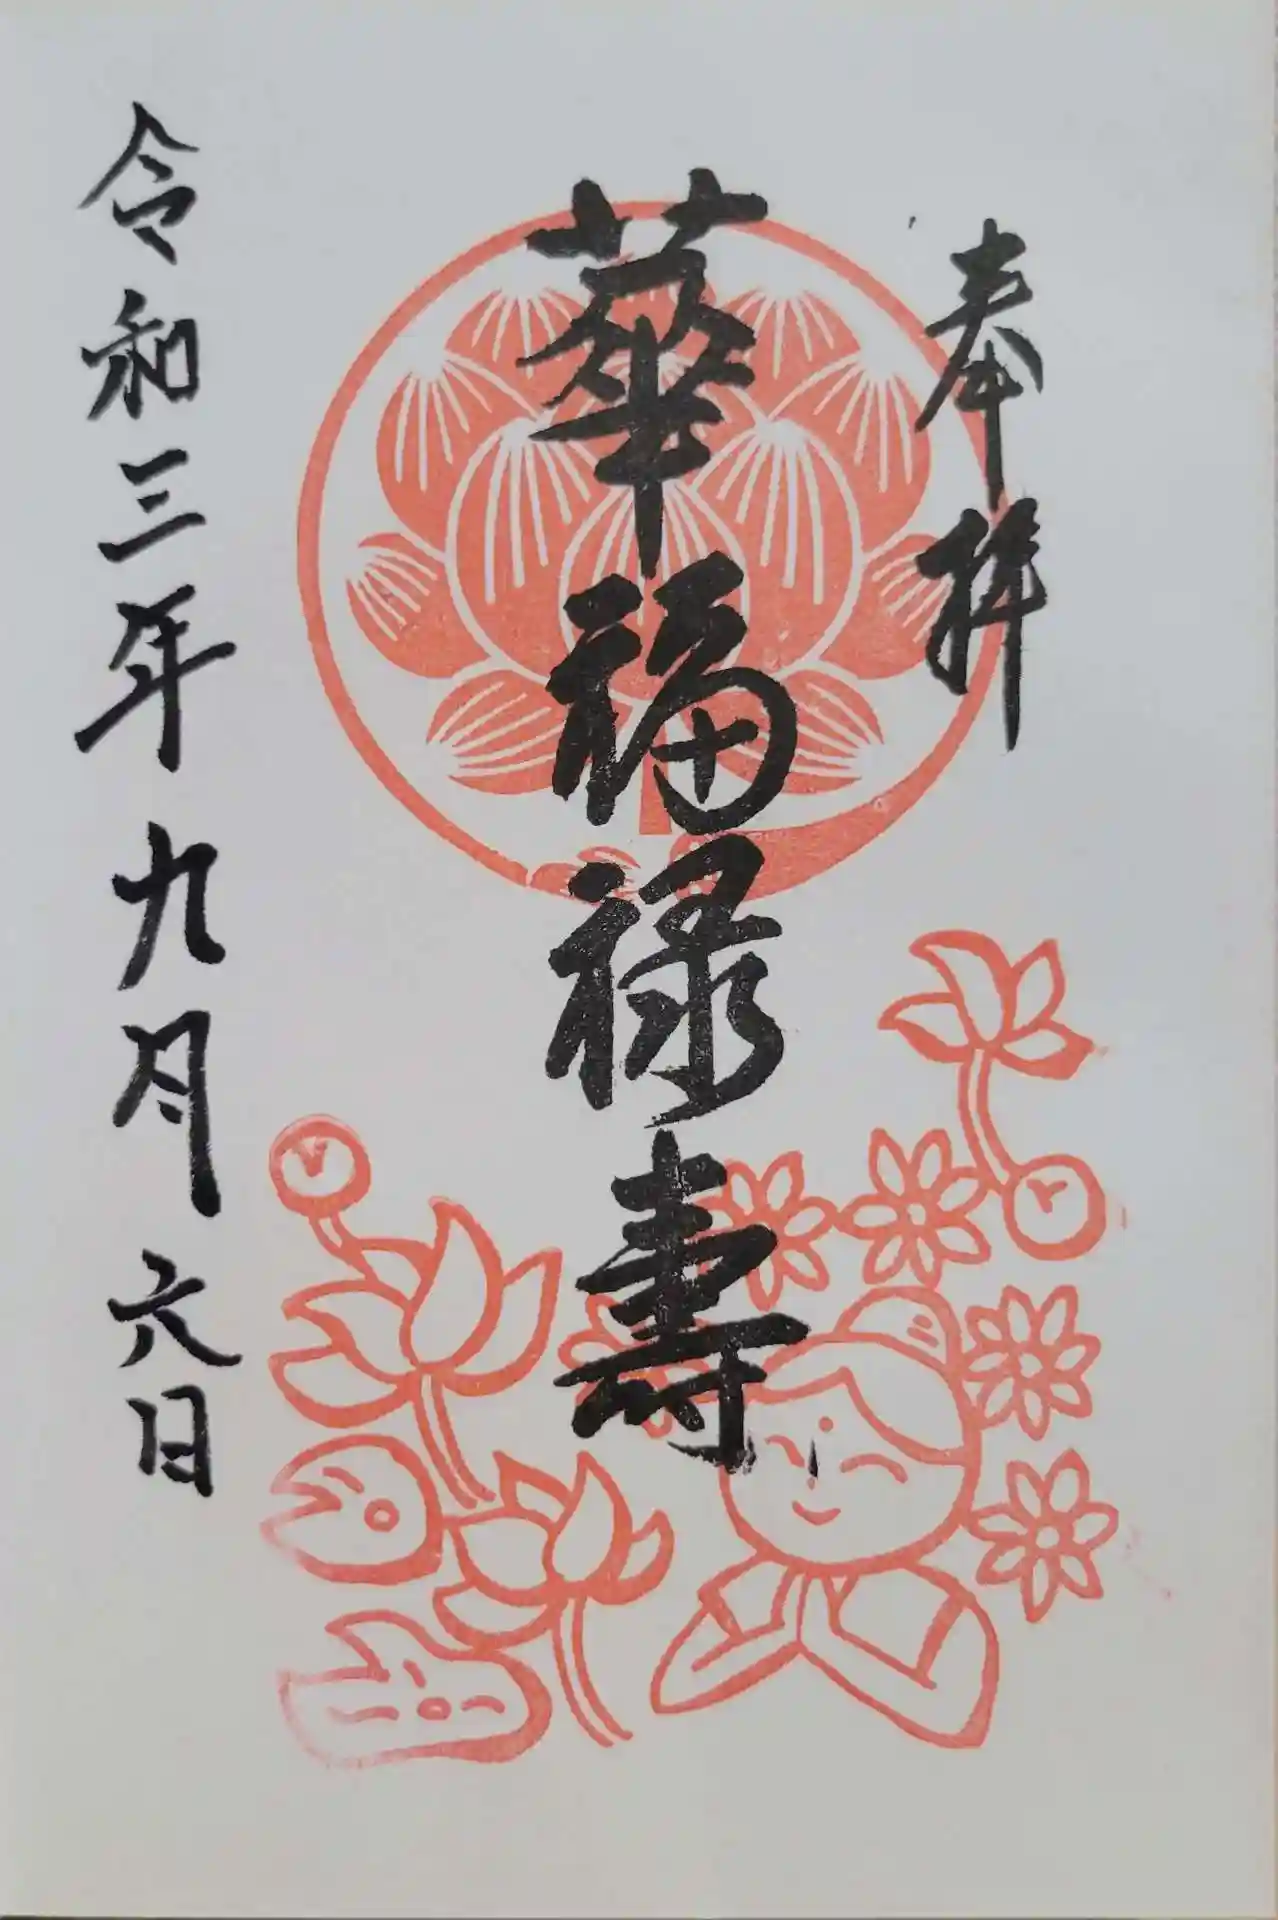 奉拝
華福禄寿
令和三年九月六日